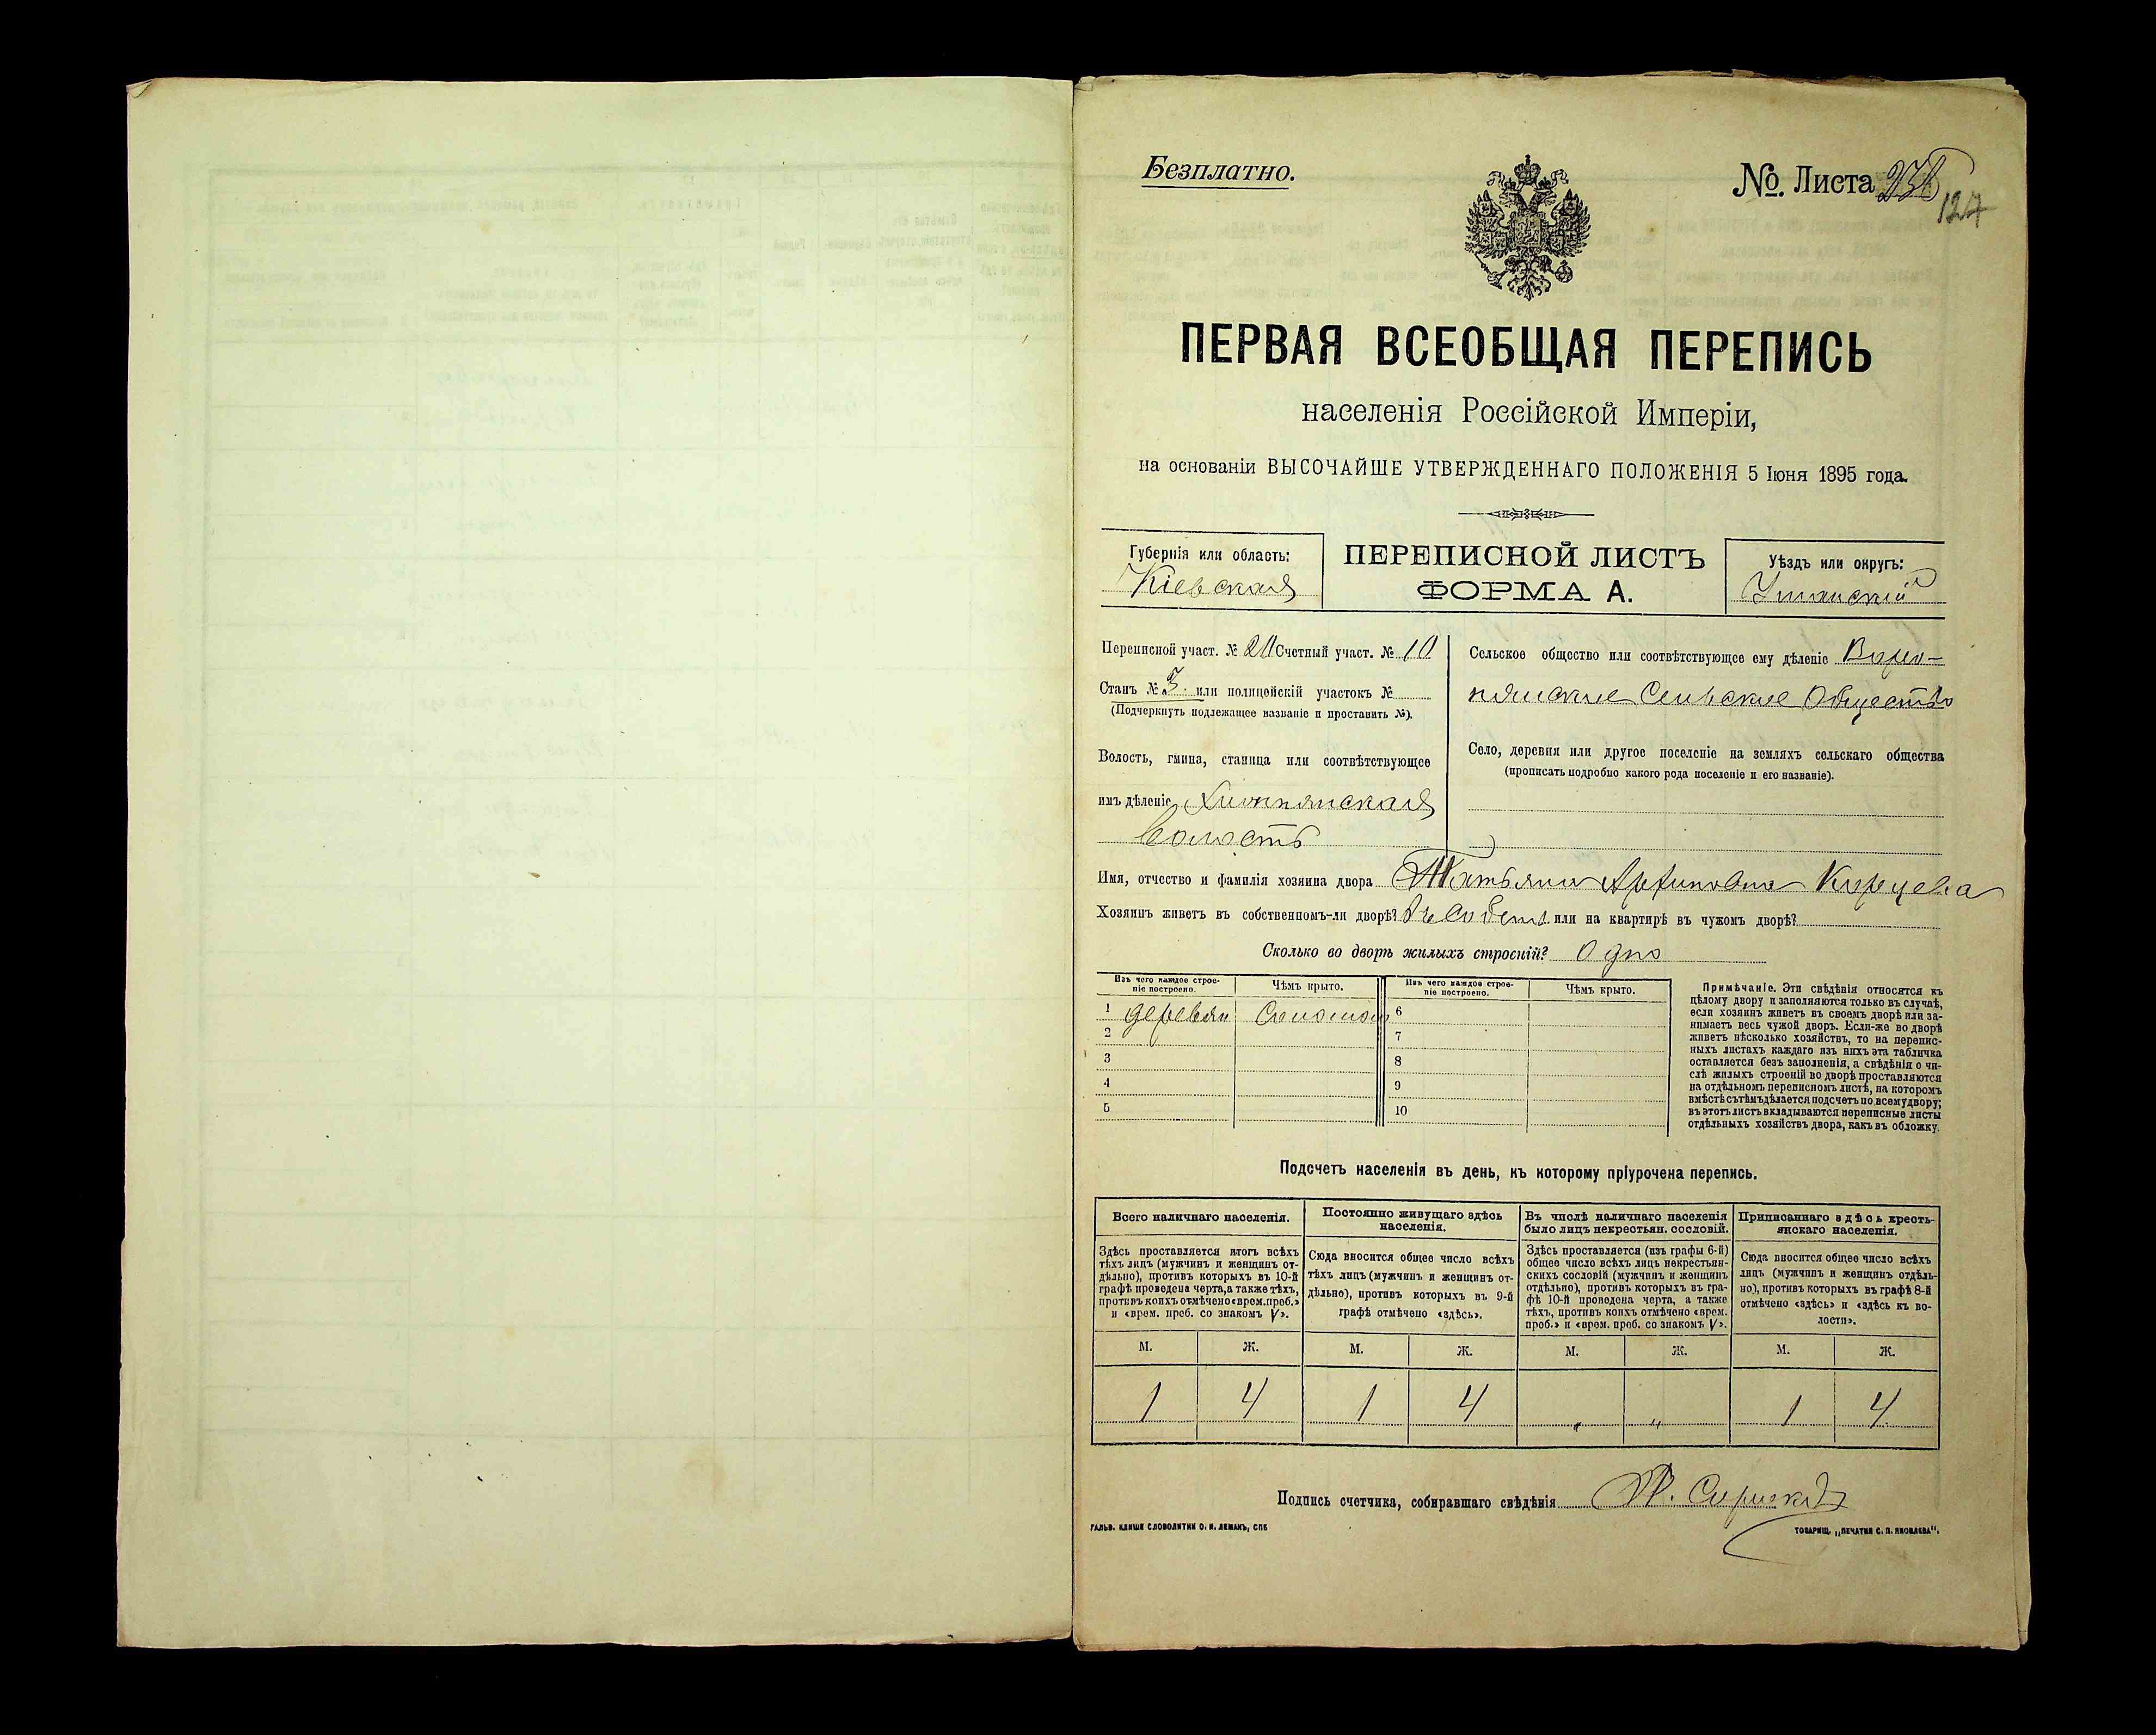 Безплатно.
№ Листа
127
ПЕРВАЯ ВСЕОБЩАЯ ПЕРЕПИСЬ
населенія Россійской Имперіи,
на основаніи ВЫСОЧАЙШЕ УТВЕРЖДЕННАГО ПОЛОЖЕНІЯ 5 Іюня 1895 года.
Губернія или область:
Кіевская
ПЕРЕПИСНОЙ ЛИСТЪ
ФОРМА А.
Уѣздъ или округъ:
Уманскій
Переписной участ. № Счетный участ. № 10
Станъ № 3. или полицейскій участокъ №
(Подчеркнуть подлежащее названіе и проставить №).
Волость, гмина, станица или соотвѣтствующее
имъ дѣленіе
Волость
Сельское общество или соотвѣтствующее ему дѣленіе
Сельское Общество
Село, деревня или другое поселеніе на земляхъ сельскаго общества
(прописать подробно какого рода поселеніе и его названіе).
Имя, отчество и фамилія хозяина двора Татьяна
Хозяинъ живетъ въ собственномъ-ли дворѣ? или на квартирѣ въ чужомъ дворѣ?
Сколько во дворѣ жилыхъ строеній? Одно
Изъ чего каждое строе-
ніе построено.
Чѣмъ крыто.
Изъ чего каждое строе-
ніе построено.
Чѣмъ крыто.
1 деревян Соломой
2
3
4
5
6
7
8
9
10
Примѣчаніе. Эти свѣдѣнія относятся къ
цѣлому двору и заполняются только въ случаѣ,
если хозяинъ живетъ въ своемъ дворѣ или за-
нимаетъ весь чужой дворъ. Если-же во дворѣ
живетъ нѣсколько хозяйствъ, то на перепис-
ныхъ листахъ каждаго изъ нихъ эта табличка
оставляется безъ заполненія, а свѣдѣнія о чи-
слѣ жилыхъ строеній во дворѣ проставляются
на отдѣльномъ переписномъ листѣ, на которомъ
вмѣстѣ съ тѣмъ дѣлается подсчетъ по всему двору;
въ этотъ листъ вкладываются переписные листы
отдѣльныхъ хозяйствъ двора, какъ въ обложку.
Подсчетъ населенія въ день, къ которому пріурочена перепись.
Всего наличнаго населенія.
Здѣсь проставляется итогъ всѣхъ
тѣхъ лицъ (мужчинъ и женщинъ от-
дѣльно), противъ которыхъ въ 10-й
графѣ проведена черта, а также тѣхъ,
противъ коихъ отмѣчено «врем. преб.»
и «врем. преб. со знакомъ V».
Постоянно живущаго здѣсь
населенія.
Сюда вносится общее число всѣхъ
тѣхъ лицъ (мужчинъ и женщинъ от-
дѣльно), противъ которыхъ въ 9-й
графѣ отмѣчено «здѣсь».
Въ числѣ наличнаго населенія
было лицъ некрестьян. сословій.
Здѣсь проставляется (изъ графы 6-й)
общее число всѣхъ лицъ некрестьян-
скихъ сословій (мужчинъ и женщинъ
отдѣльно), противъ которыхъ въ гра-
фѣ 10-й проведена черта, а также
тѣхъ, противъ коихъ отмѣчено «врем.
преб.» и «врем. преб. со знакомъ V».
Приписаннаго здѣсь кресть-
янскаго населенія.
Сюда вносится общее число всѣхъ
лицъ (мужчинъ и женщинъ отдѣль-
но), противъ которыхъ въ графѣ 8-й
отмѣчено «здѣсь» и «здѣсь къ во-
лости».
М. Ж. М. Ж. М. Ж. М. Ж.
1 4 1 4 „ „ 1 4
Подпись счетчика, собиравшаго свѣдѣнія
ГАЛЬВ. КЛИШЕ СЛОВОЛИТНИ О. И. ЛЕМАНЪ, СПБ
ТОВАРИЩ. „ПЕЧАТНЯ С. П. ЯКОВЛЕВА“.